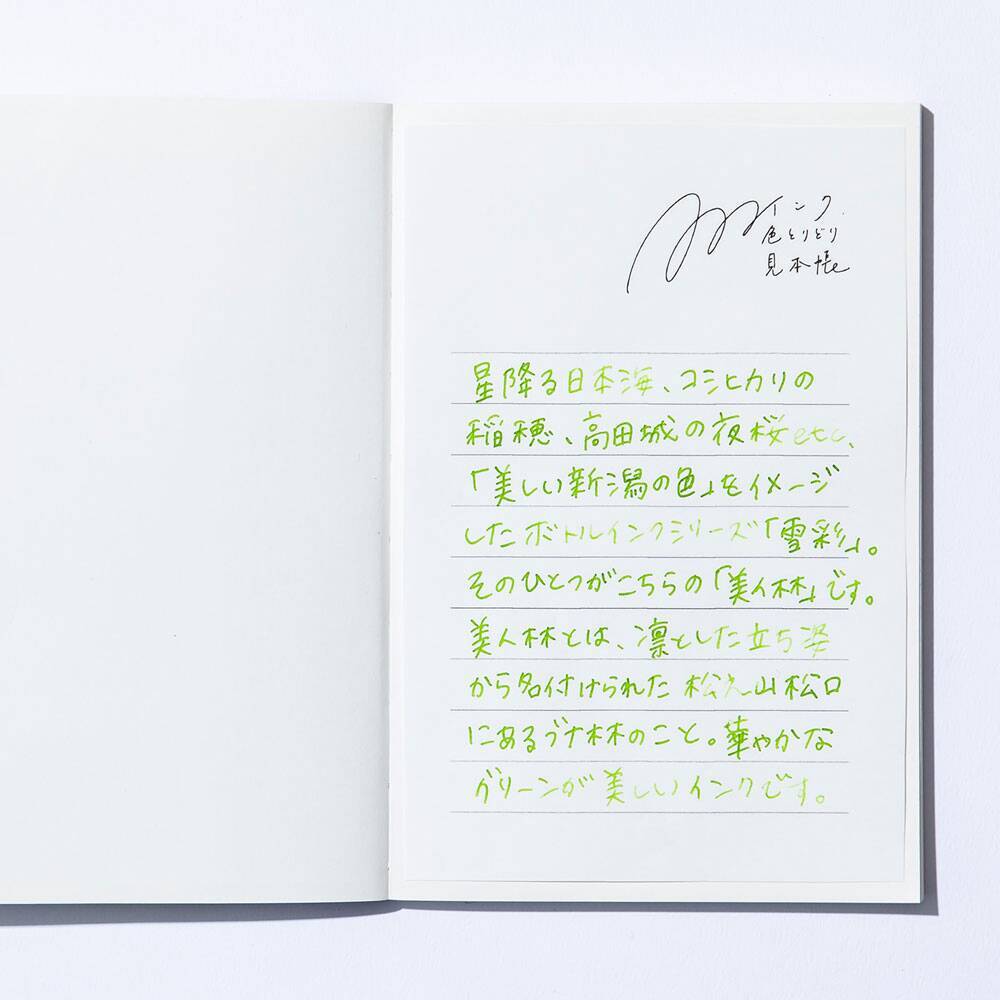 インク
色とりどり
見本帳
星降る日本海、コシヒカリの
稲穂、高田城の夜桜etc、
「美しい新潟の色」をイメージ
したボトルインクシリーズ「雪彩」。
そのひとつがこちらの「美人林」です。
美人林とは、凛とした立ち姿
から名付けられた 松之山松口
にあるブナ林のこと。華やかな
グリーンが美しいインクです。